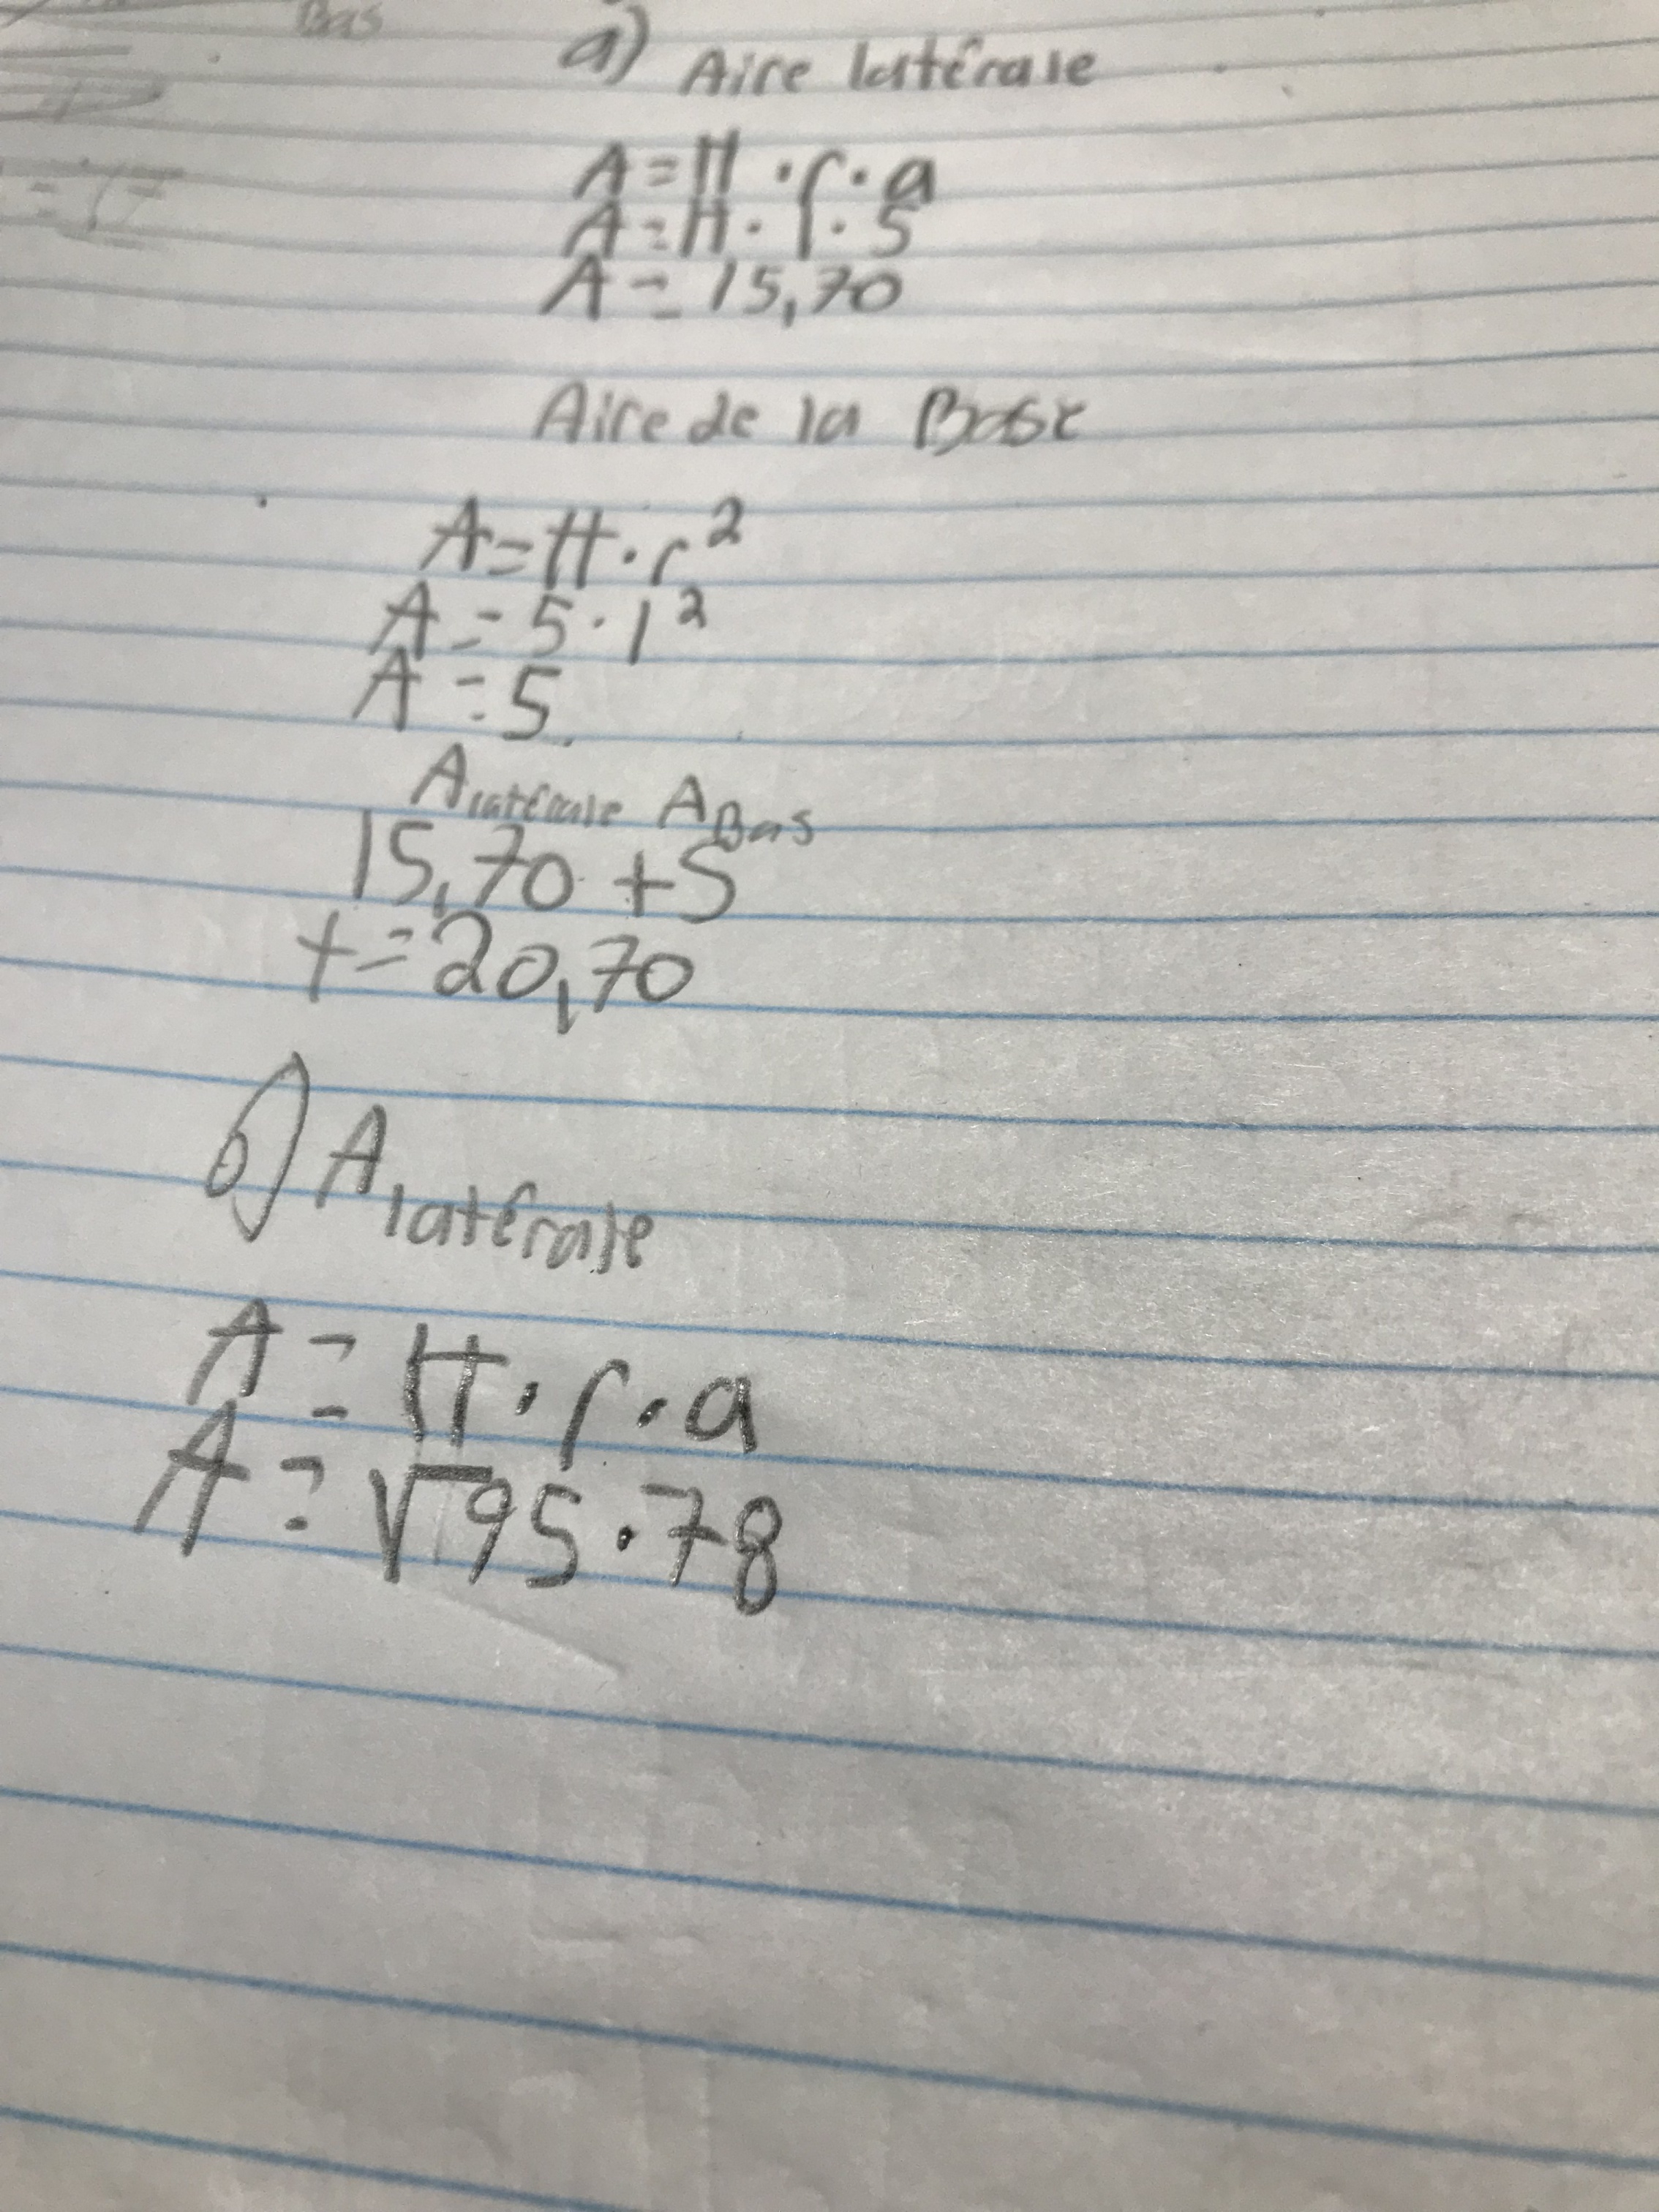 Bas
a) Aire latérale
A = π · r · a
A = π · 1 · 5
A = 15,70
= 17
Aire de la Base
A = π · r²
A = 5 · 1²
A = 5
A latérale A Bas
15,70 + 5
t = 20,70
b) A latérale
A = π · r · a
A = √95 · 78